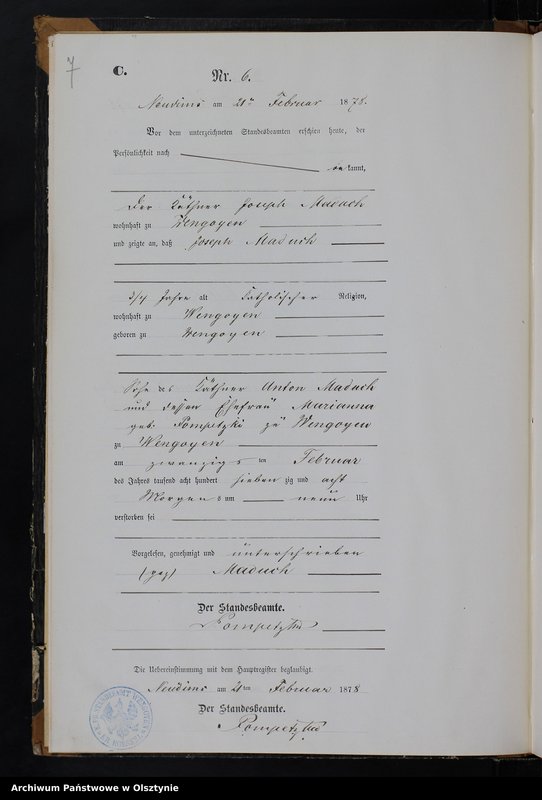 7
C.
Nr. 6.
Neudims am 21ten Februar 1878.
Vor dem unterzeichneten Standesbeamten erschien heute, der
Persönlichkeit nach
kannt,
Der Käthner Joseph Maduch
wohnhaft zu Wengoyen
und zeigte an, daß Joseph Maduch
3/4 Jahre alt Katholischer Religion,
wohnhaft zu Wengoyen
geboren zu Wengoyen
Sohn des Käthner Anton Maduch
und dessen Ehefrau Marianna
geb: Pompetzki zu Wengoyen
zu Wengoyen
am zwanzigsten Februar
des Jahres tausend acht hundert siebenzig und acht
Morgens um neun Uhr
verstorben sei
Vorgelesen, genehmigt und unterschrieben
(gez) Maduch
Der Standesbeamte.
Die Uebereinstimmung mit dem Hauptregister beglaubigt.
Neudims am 21ten Februar 1878
Der Standesbeamte.
Archiwum Państwowe w Olsztynie